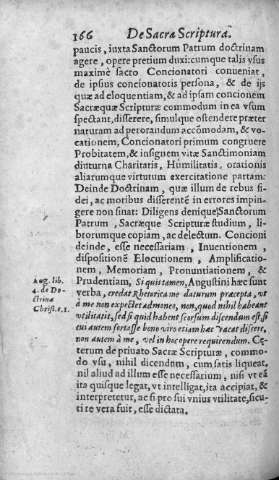 166 De Sacra Scriptura.
paucis, iuxta Sanctorum Patrum doctrinam
agere, opere pretium duxi: cumque talis vsus
maximè sacro Concionatori conueniat,
de ipsius concionatoris persona, & de ijs
quæ ad eloquentiam, & ad ipsam concionem
Sacræquæ Scripturæ commodum in ea vsum
spectant, disserere, simulque ostendere præter
naturam ad perorandum accōmodam, & vo-
cationem, Concionatori primum congruere
Probitatem, & insignem vitæ Sanctimoniam
diuturna Charitatis, Humilitatis, orationis
aliarumque virtutum exercitatione partam:
Deinde Doctrinam, quæ illum de rebus fi-
dei, ac moribus disserentē in errores impin-
gere non sinat: Diligens denique Sanctorum
Patrum, Sacræque Scripturæ studium, li-
brorumque copiam, ac delectum. Concioni
deinde, esse necessariam, Inuentionem,
dispositionē Elocutionem, Amplificatio-
nem, Memoriam, Pronuntiationem, &
Prudentiam, Si quis tamen, Augustini hæc sunt
verba, credat Rhetorica me daturum præcepta, vt
à me non expectet admoneo, non, quod nihil habeant
vtilitatis, sed si quid habent seorsum discendum est, si
cui autem fortasse bono viro etiam hæc vacat discere,
non autem à me, vel in hoc opere requirendum. Cę-
terum de priuato Sacræ Scripturæ, commo-
do vsu, nihil dicendum, cum satis liqueat,
nil aliud ad illum esse necessarium, nisi vt ea
ita quisque legat, vt intelligat, ita accipiat, &
interpretetur, ac si pro sui vnius vtilitate, sicu-
ti re vera fuit, esse dictata.
Aug. lib.
4. de Do-
ctrina
Christ. c. 1.